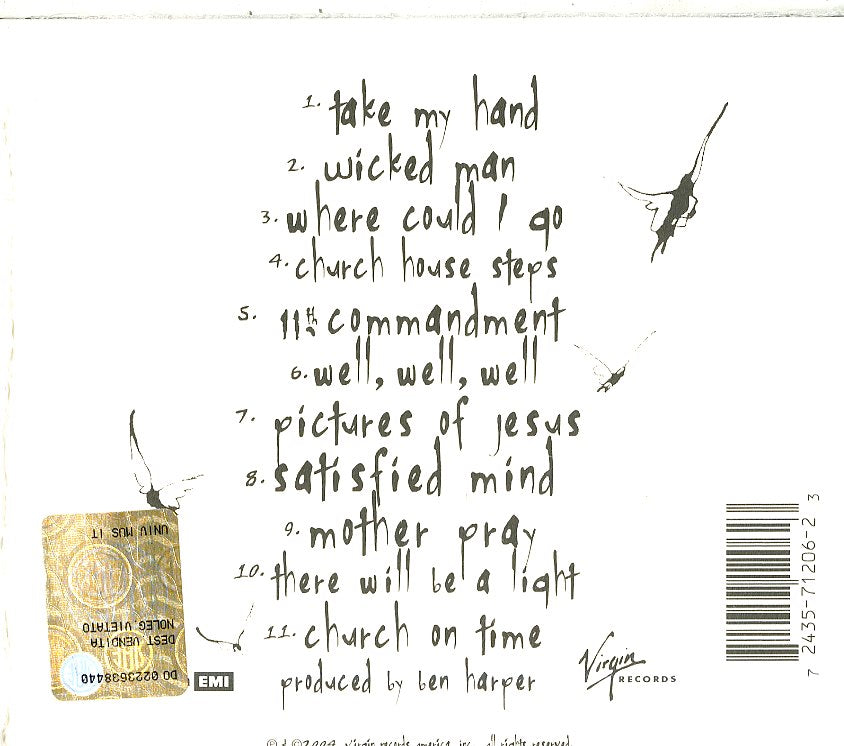 1. take my hand
2. wicked man
3. where could I go
4. church house steps
5. 11th commandment
6. well, well, well
7. pictures of jesus
8. satisfied mind
9. mother pray
10. there will be a light
11. church on time
produced by ben harper
EMI
Virgin RECORDS
7 2435-71206-2 3
UNIV MUS IT
NOLEG.VIETATO
DEST.VENDITA
DO 0223638440
virgin records america, inc. all rights reserved.